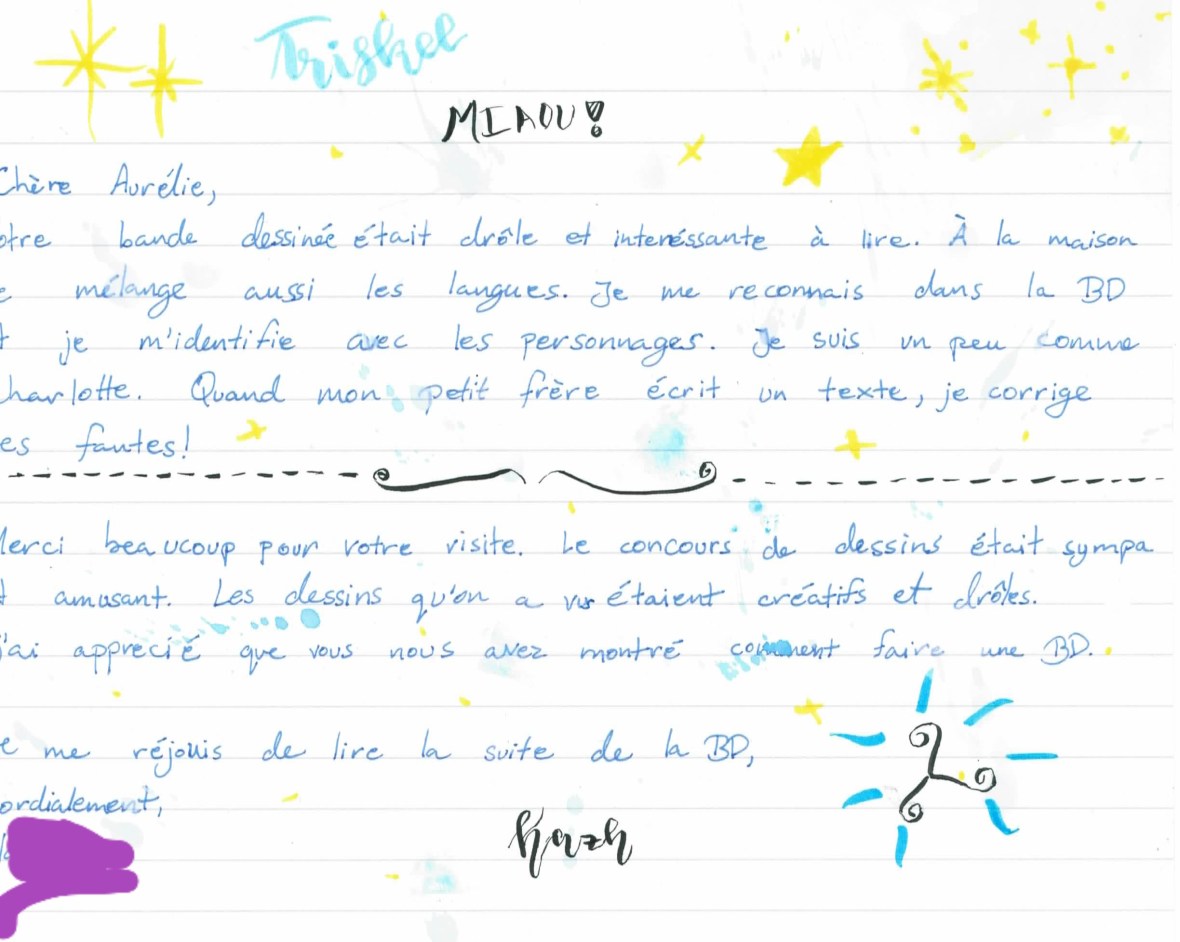 Triskel
MIAOU!
Chère Aurélie,
otre bande dessinée était drôle et interéssante à lire. À la maison
e mélange aussi les langues. Je me reconnais dans la BD
t je m'identifie avec les personnages. Je suis un peu comme
harlotte. Quand mon petit frère écrit un texte, je corrige
es fautes!
Merci beaucoup pour votre visite. Le concours de dessins était sympa
t amusant. Les dessins qu'on a vus étaient créatifs et drôles.
'ai apprecié que vous nous avez montré comment faire une BD.
e me réjouis de lire la suite de la BD,
ordialement,
Kazh